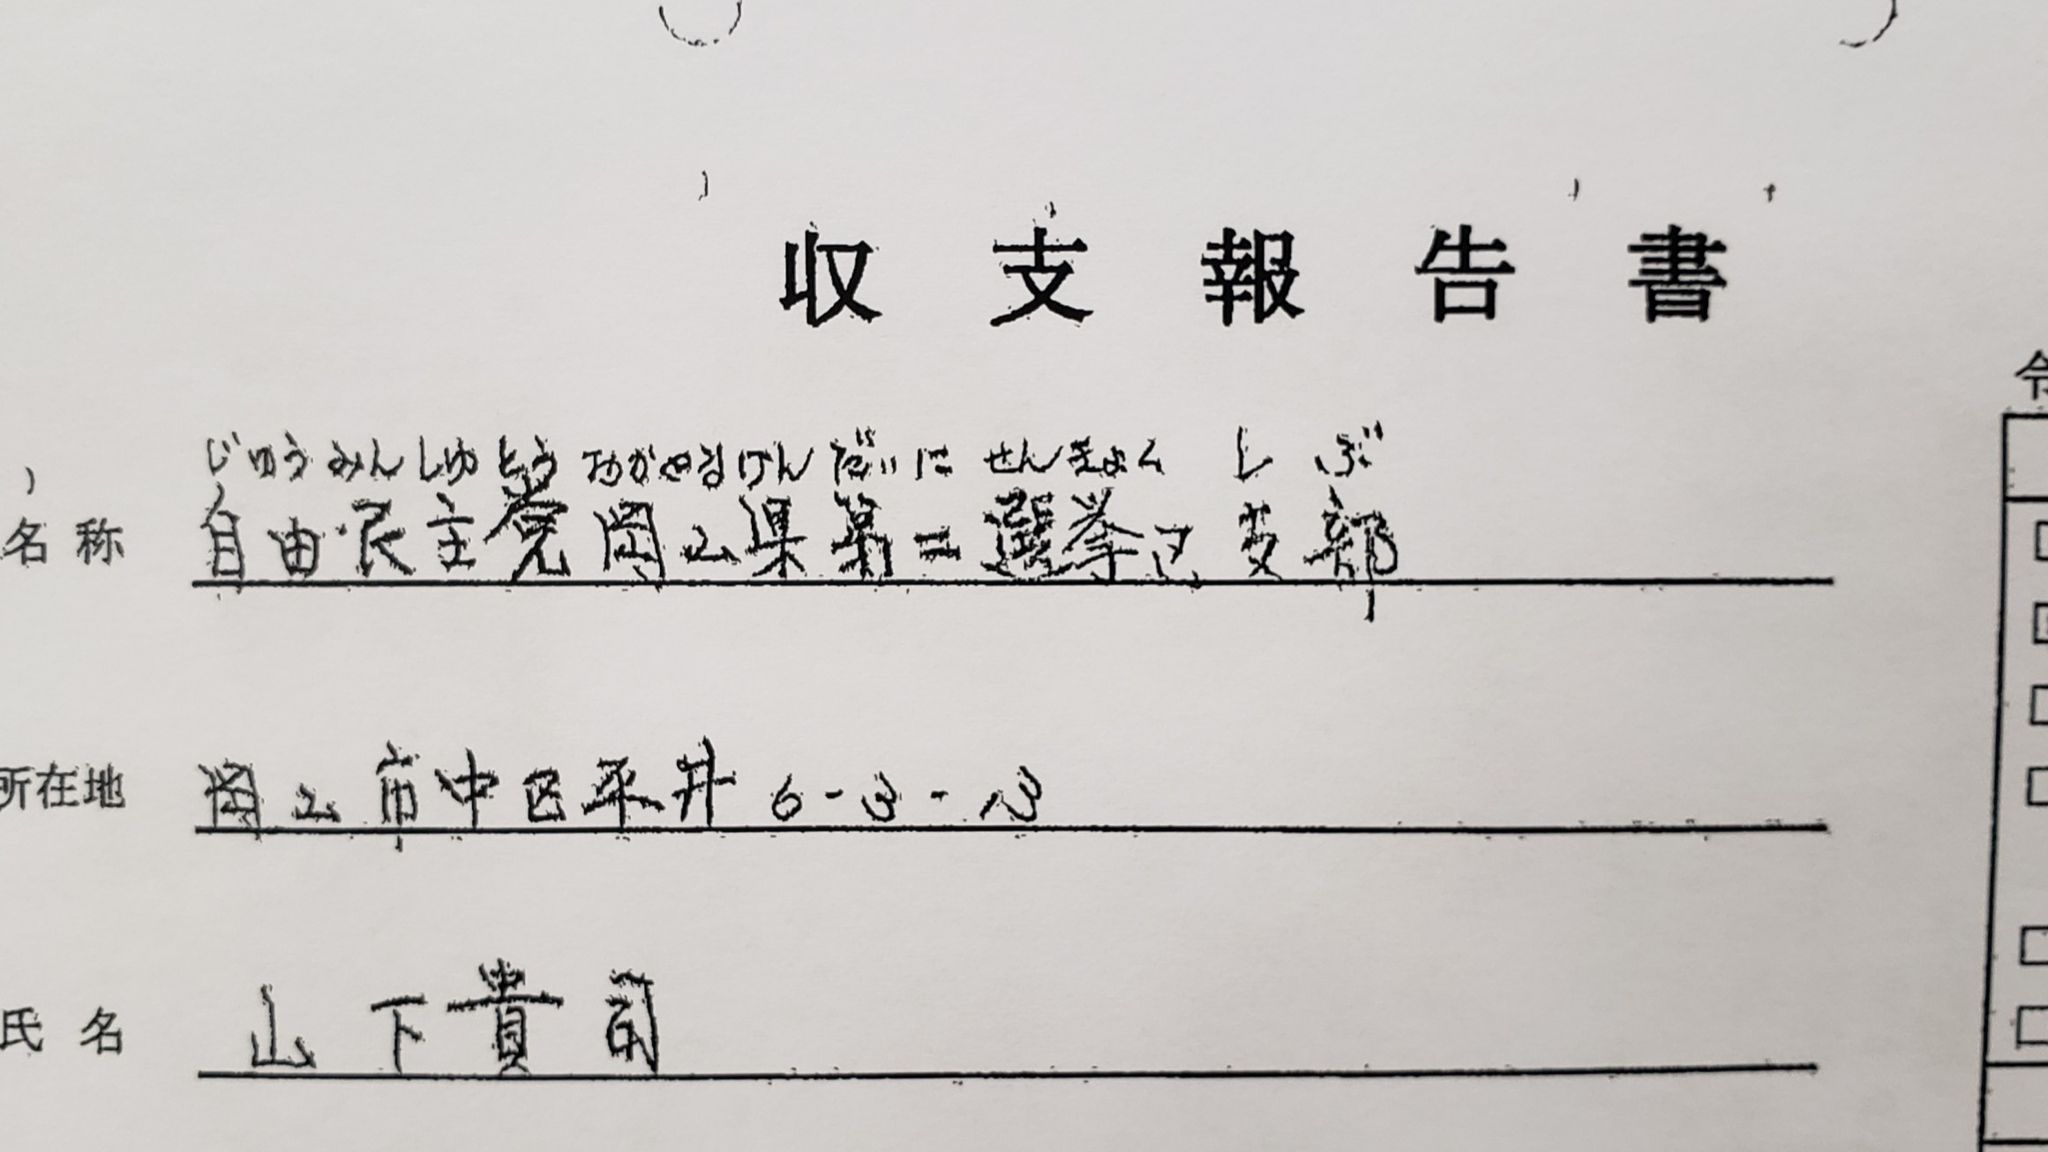 収支報告書
令
じゆうみんしゅとうおかやまけんだいにせんきょくしぶ
名称 自由民主党岡山県第二選挙区支部
所在地 岡山市中区平井6-3-13
氏名 山下貴司